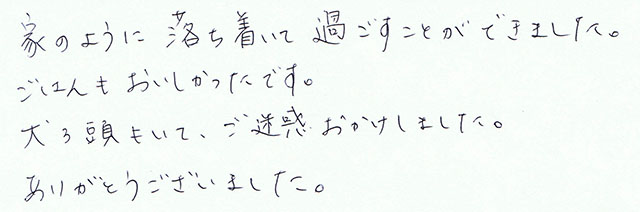 家のように落ち着いて過ごすことができました。
ごはんもおいしかったです。
犬3頭もいて、ご迷惑おかけしました。
ありがとうございました。